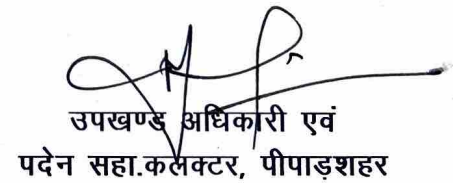 उपखण्ड अधिकारी एवं
पदेन सहा.कलक्टर, पीपाड़शहर